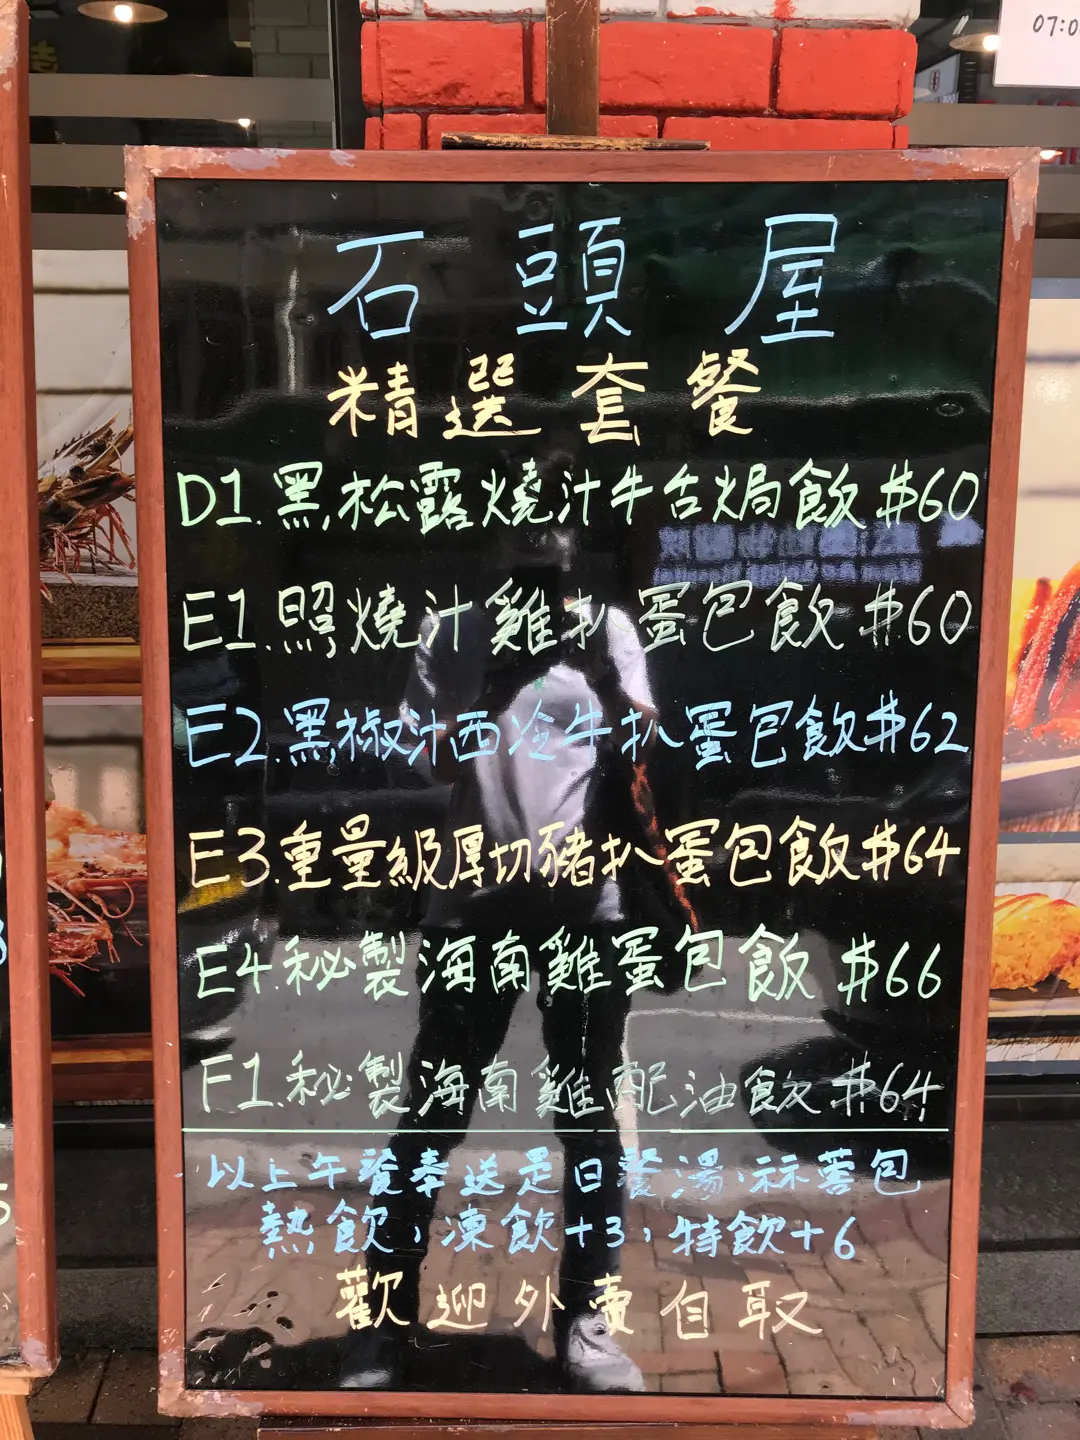 07:0
石頭屋
精選套餐
D1.黑松露燒汁牛舌焗飯 $60
E1.照燒汁雞扒蛋包飯 $60
E2.黑椒汁西冷牛扒蛋包飯 $62
E3.重量級厚切豬扒蛋包飯 $64
E4.秘製海南雞蛋包飯 $66
F1.秘製海南雞配油飯 $64
以上午餐奉送是日餐湯,蒜蓉包
熱飲,凍飲+3,特飲+6
歡迎外賣自取